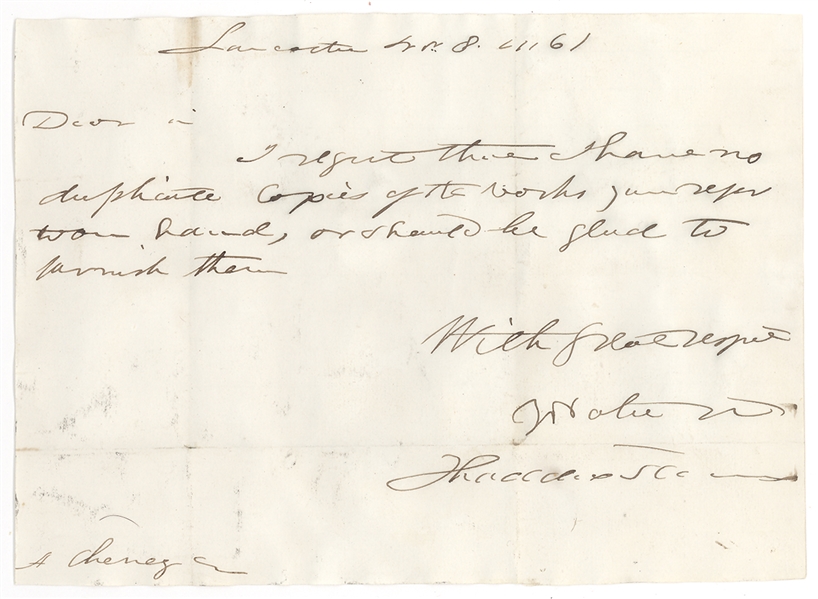 Lancaster 8. 1861
Dear Sir
I regret that I have no
duplicate copies of the works you refer
to on hand, or should be glad to
furnish them
With great respect
Thaddeus Stevens
A Cheney